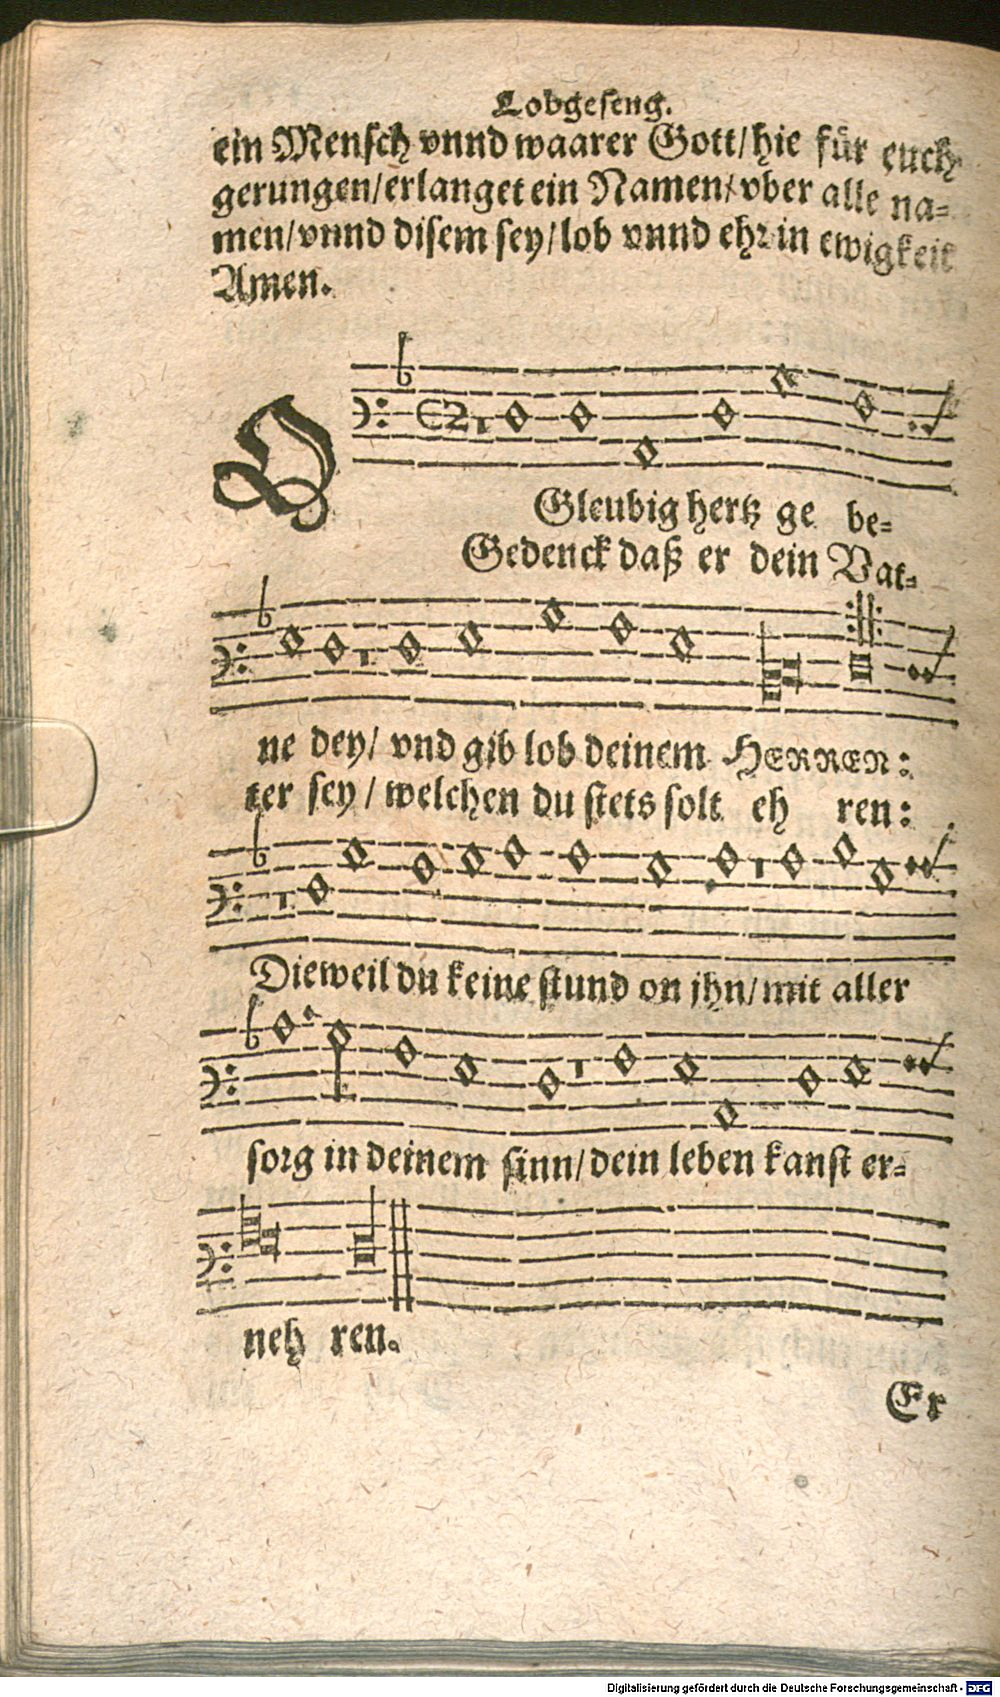 Lobgeseng.
ein Mensch vnnd waarer Gott/hie für euch
gerungen/erlanget ein Namen/vber alle na=
men/vnnd disem sey/lob vnnd ehr in ewigkeit
Amen.
O
Gleubig hertz ge be=
Gedenck daß er dein Vat=
ne dey/ vnd gib lob deinem HERREN:
ter sey/ welchen du stets solt eh ren:
Dieweil du keine stund on jhn/mit aller
sorg in deinem sinn/dein leben kanst er=
neh ren.
Er
Digitalisierung gefördert durch die Deutsche Forschungsgemeinschaft - DFG